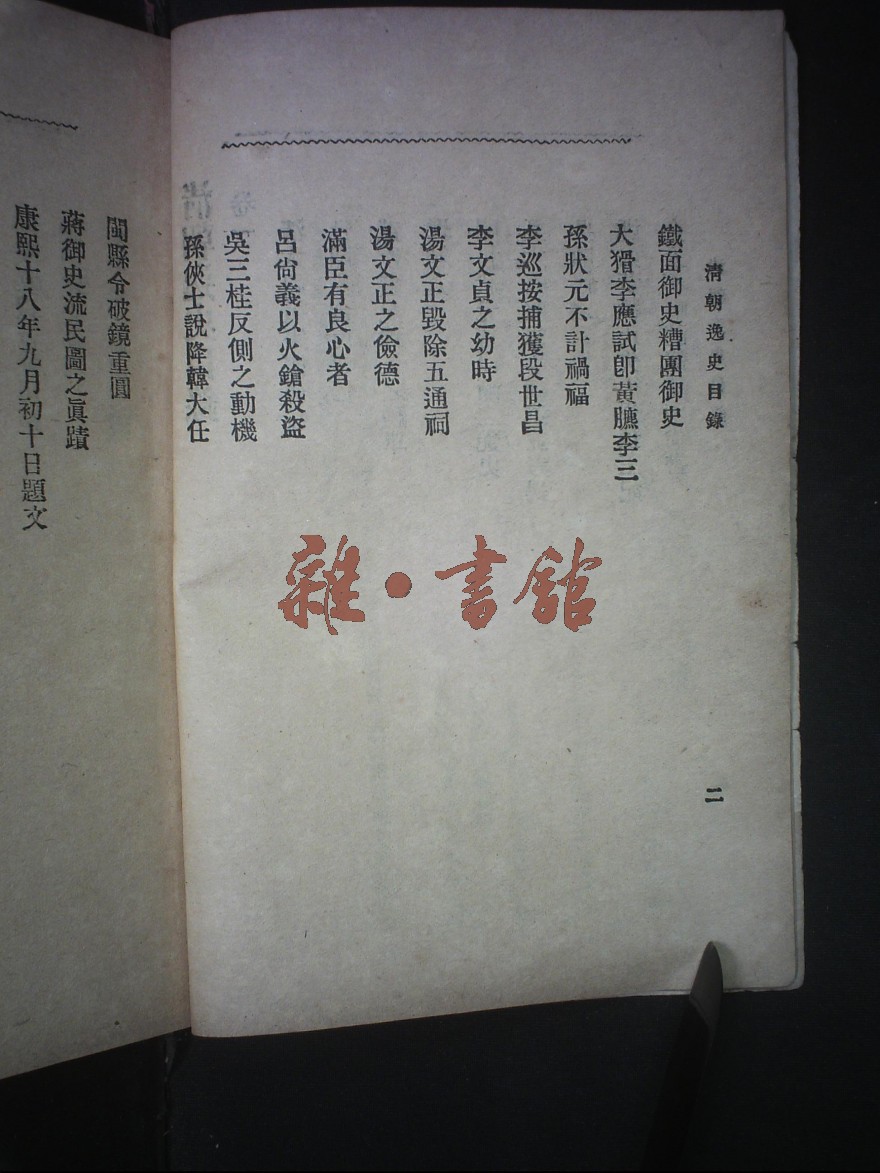 清朝逸史目錄
二
鐵面御史糟團御史
大猾李應試卽黃臕李三
孫狀元不計禍福
李巡按捕獲段世昌
李文貞之幼時
湯文正毀除五通祠
湯文正之儉德
滿臣有良心者
呂尙義以火鎗殺盜
吳三桂反側之動機
孫俠士說降韓大任
閩縣令破鏡重圓
蔣御史流民圖之眞蹟
康熙十八年九月初十日題文
雜·書館